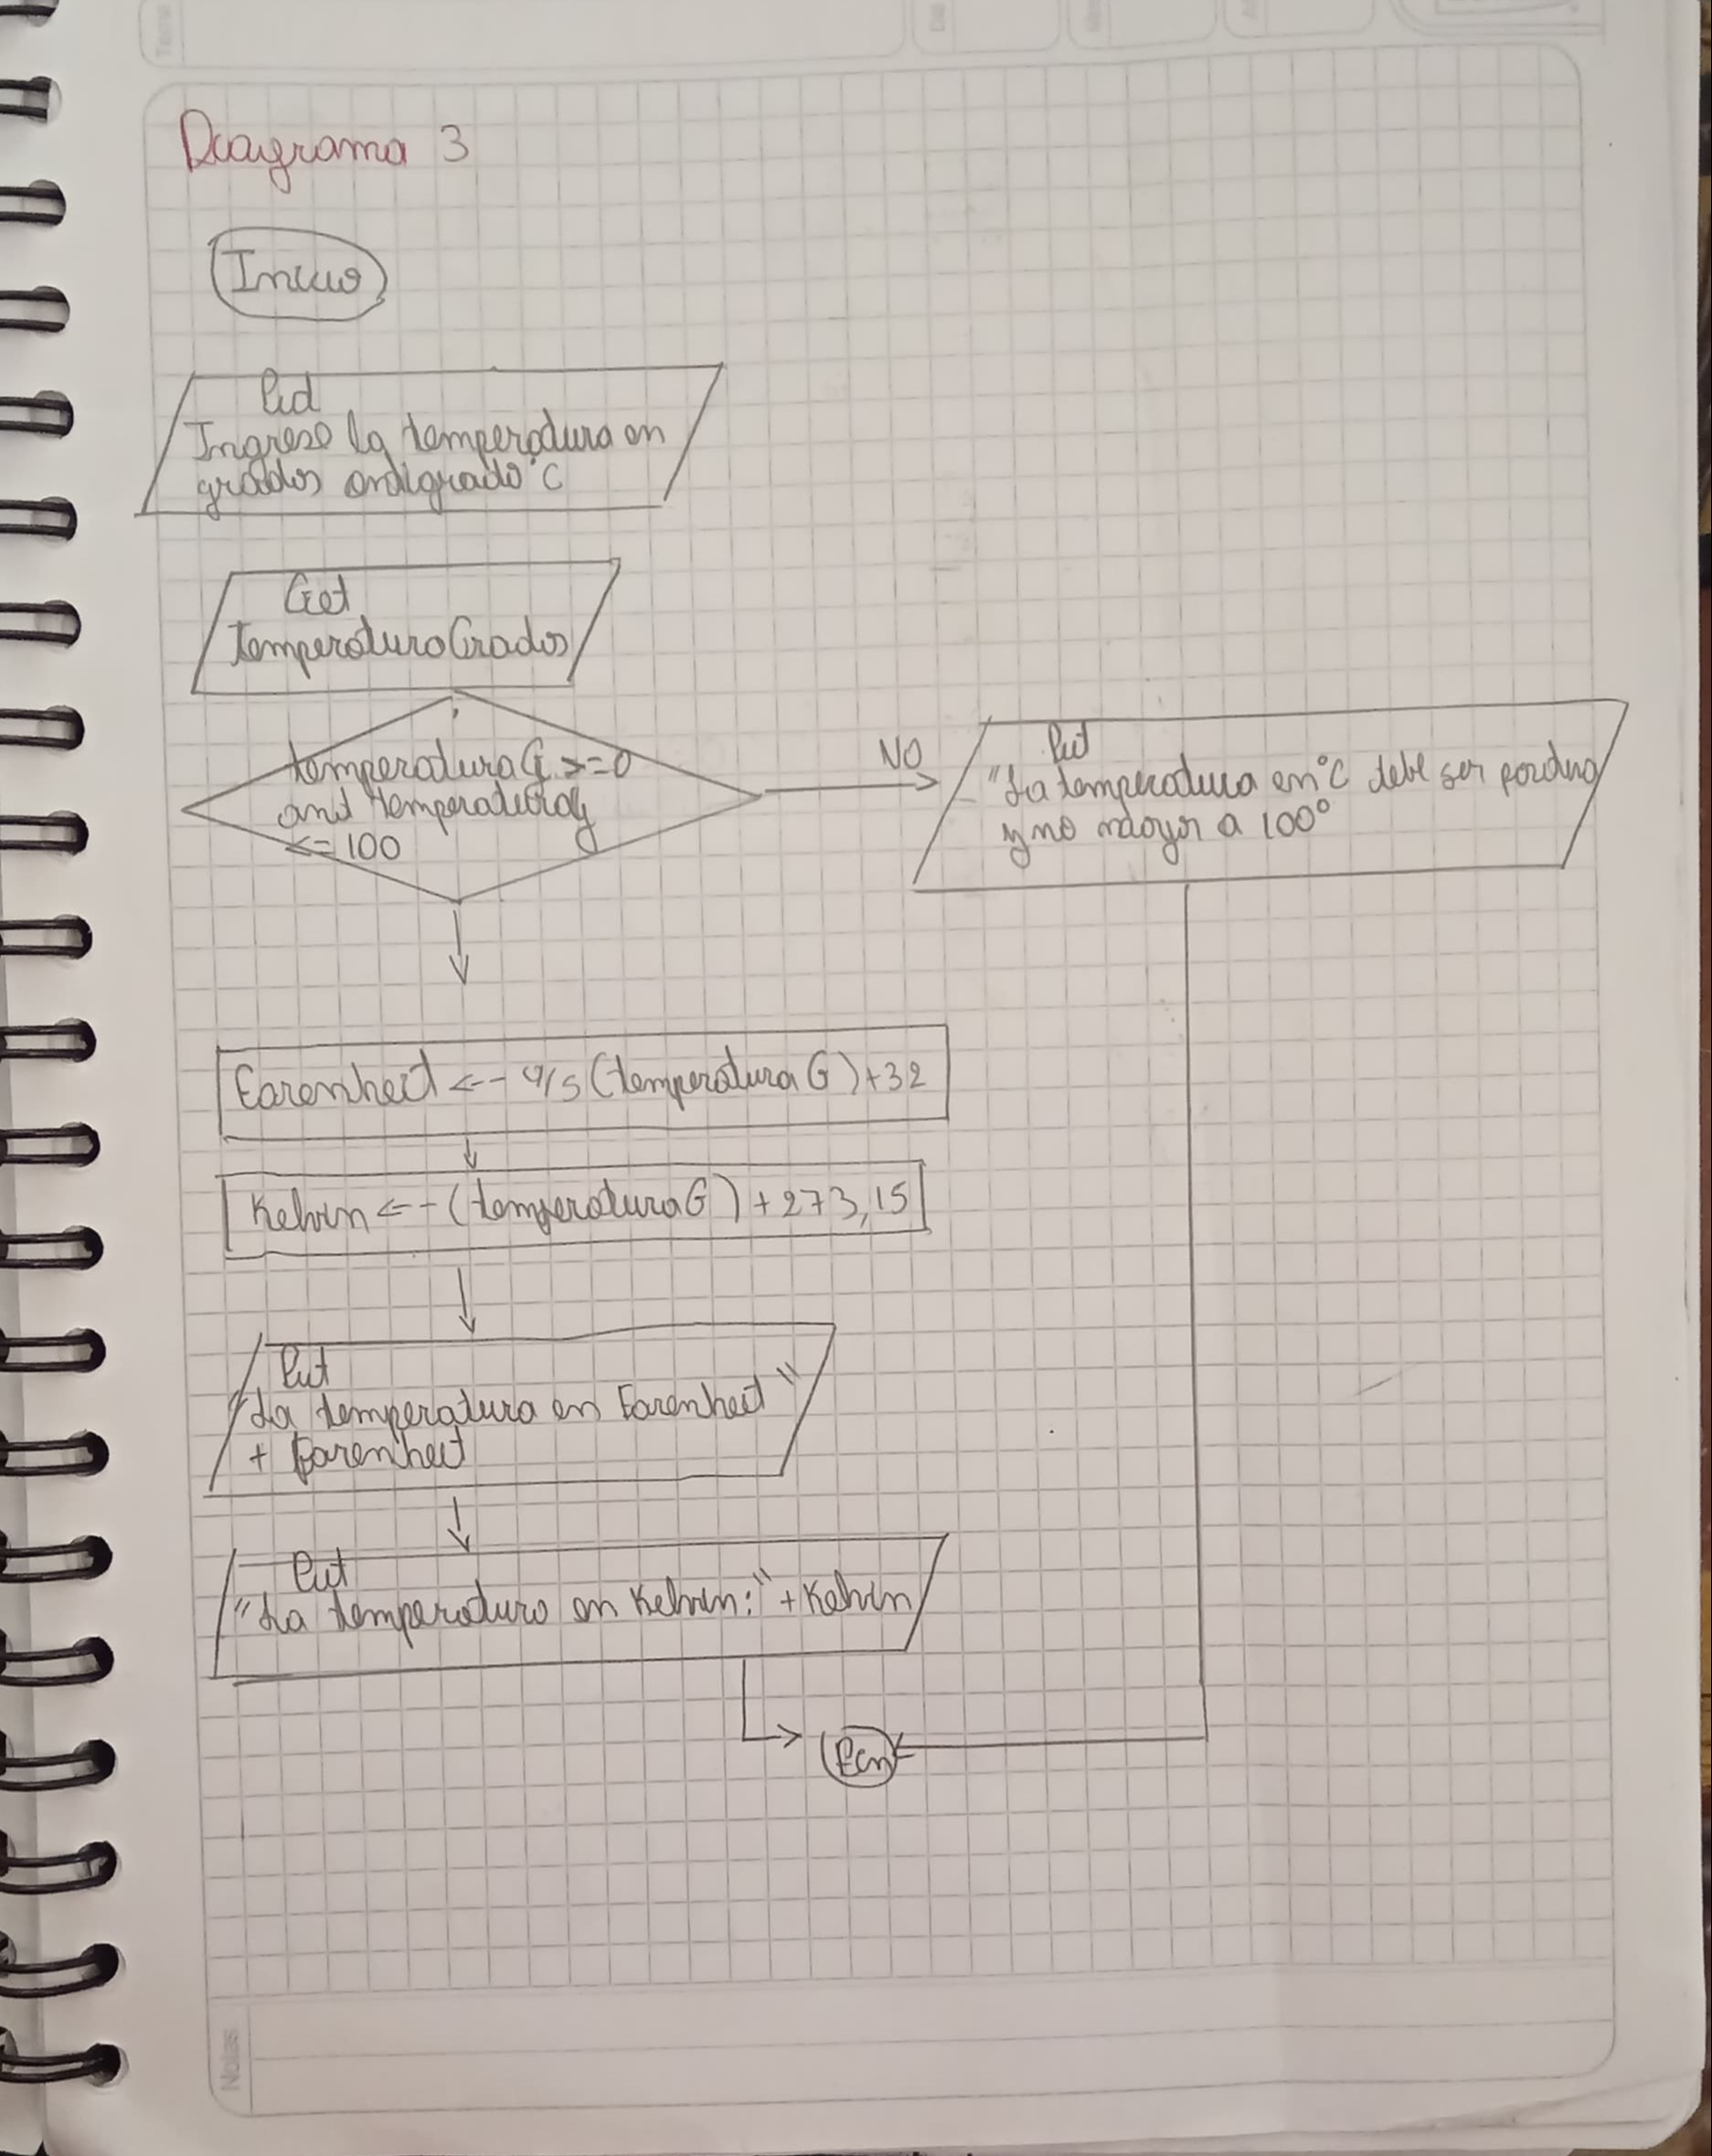 Diagrama 3
Inicio
Put
Ingrese la temperatura en
grados centigrado °C
Get
temperaturaGrados
temperaturaG >=0
and temperaturaG
<=100
NO
Put
"La temperatura en °C debe ser positiva
y no mayor a 100°
Farenheit <-- 9/5 (temperatura G) +32
Kelvin <-- (temperaturaG) + 273,15
Put
"La temperatura en Farenheit"
+ Farenheit
Put
"La temperatura en Kelvin:" + Kelvin
Fin
Notas